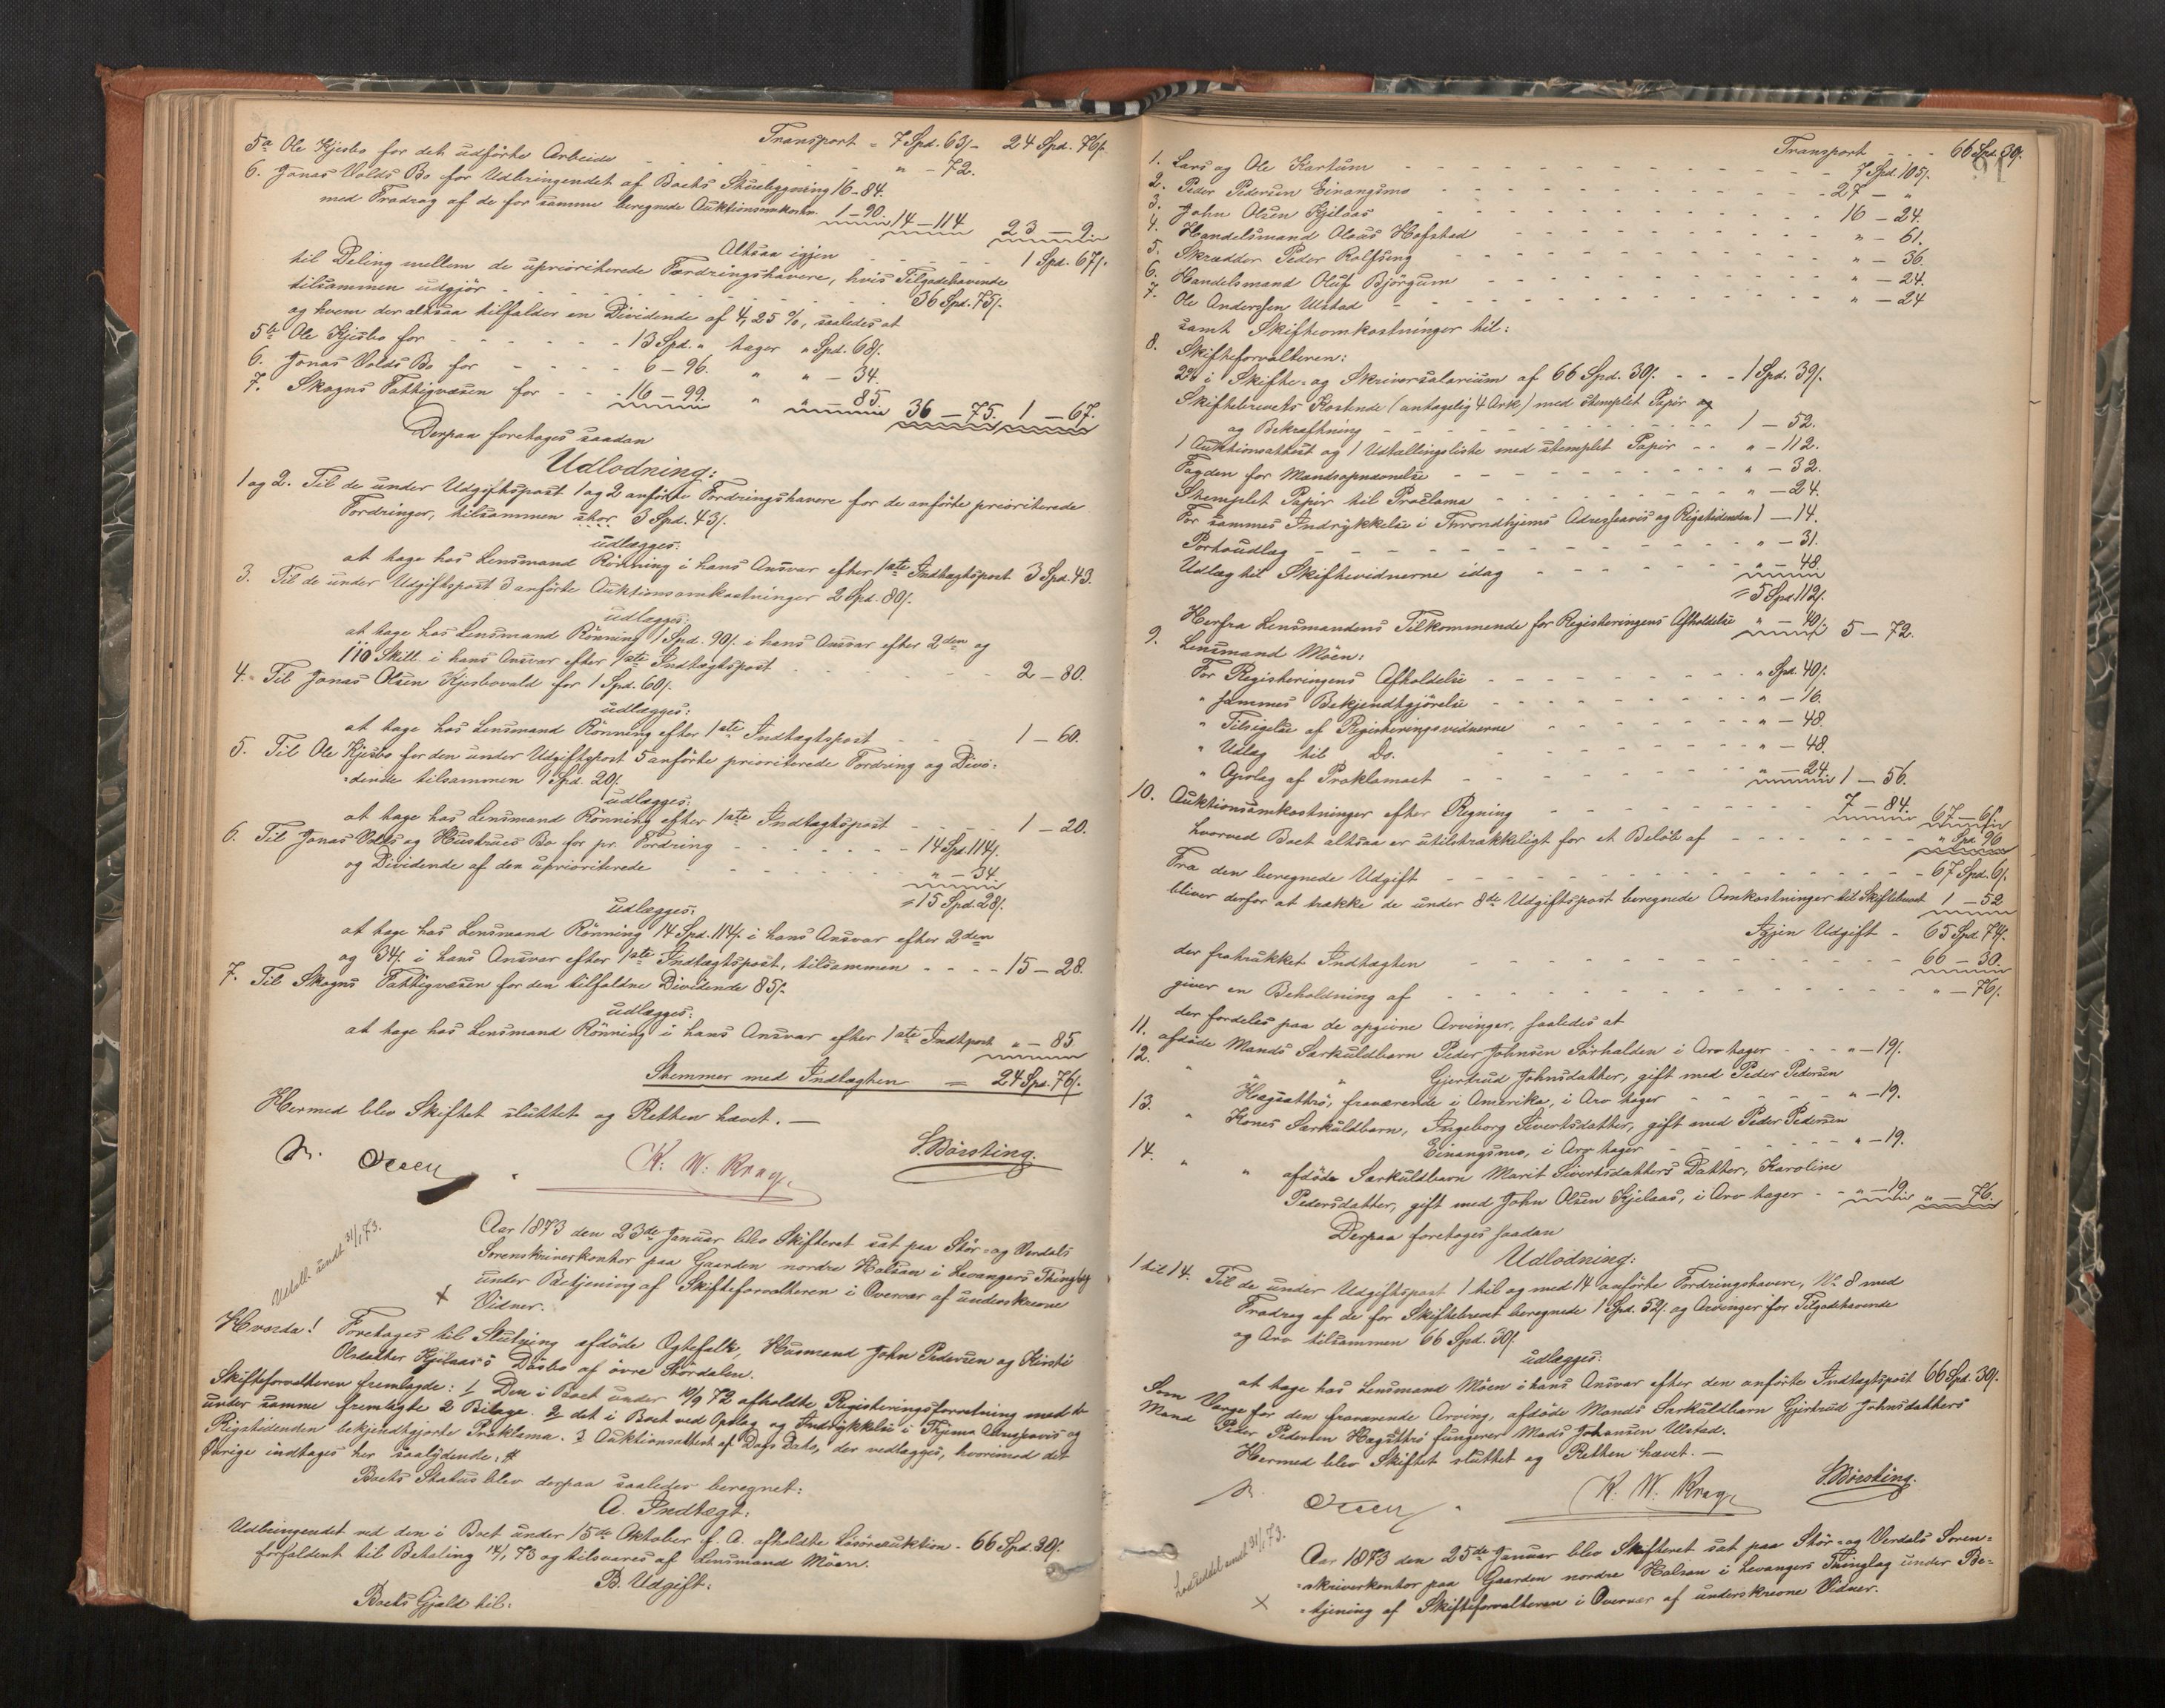 Transport = 7 Spd. 63/- 24 Spd. 76/.
5a Ole Kjesbo for det udförte Arbeide - - - - - " - 72.
6. Jonas Volds Bo for Udbringendet af Boets Huusbygning 16-84.
med Fradrag af de for samme beregnede Auktionsomkostn. 1-90. 14-114 23-9.
Altsaa igjen - - - - - 1 Spd. 67/.
til Deling mellem de uprioriterede Fordringshavere, hvis Tilgodehavende
tilsammen udgjör - - - - - 36 Spd. 75/.
og hvem der altsaa tilfalder en Dividende af 4,25 %, saaledes at
5b Ole Kjesbo for - - - - - 13 Spd. " tager " Spd. 68/.
6. Jonas Volds Bo for - - - - 6-96. " " - 34.
7. Skogns Fattigvæsen for - - - 16-99. " " - 85. 36-75. 1-67.
Derpaa foretoges saadan
Udlodning:
1 og 2. Til de under Udgiftspost 1 og 2 anförte Fordringshavere for de anförte prioriterede
Fordringer, tilsammen stor 3 Spd. 43/.
udlægges:
at tage hos Lensmand Rönning i hans Ansvar efter 1ste Indtægtspost 3 Spd. 43.
3. Til de under Udgiftspost 3 anförte Auktionsomkostninger 2 Spd. 80/.
udlægges:
at tage hos Lensmand Rönning 1 Spd. 90/. i hans Ansvar efter 2den og
110 Skill. i hans Ansvar efter 1ste Indtægtspost - - - - - 2-80.
4. Til Jonas Olsen Kjesbovald for 1 Spd. 60/.
udlægges:
at tage hos Lensmand Rönning efter 1ste Indtægtspost - - - - 1-60.
5. Til Ole Kjesbo for den under Udgiftspost 5 anförte prioriterede Fordring og Divi-
-dende tilsammen 1 Spd. 20/.
udlægges:
at tage hos Lensmand Rönning efter 1ste Indtægtspost - - - - 1-20.
6. Til Jonas Volds og Hustrues Bo for pr. Fordring - - - - - 14 Spd. 114/.
og Dividende af den uprioriterede - - - - - " - 34.
= 15 Spd. 28/.
udlægges:
at tage hos Lensmand Rönning 14 Spd. 114/. i hans Ansvar efter 2den
og 34/. i hans Ansvar efter 1ste Indtægtspost, tilsammen - - - - 15-28.
7. Til Skogns Fattigvæsen for den tilfaldne Dividende 85/.
udlægges:
at tage hos Lensmand Rönning i hans Ansvar efter 1ste Indtpost " - 85.
Stemmer med Indtægten = 24 Spd. 76/.
Hermed blev Skiftet sluttet og Retten hævet. —
K. W. Krag. S. Börsting.
Aar 1873 den 23de Januar blev Skifteret sat paa Stör- og Værdals
Sorenskriverkontor paa Gaarden nordre Halsan i Levangers Thinglag
under Betjening af Skifteforvalteren i Overvær af underskrevne
Vidner.
31/1 73.
X
Hvorda! Foretoges til Slutning afdöde Ægtefolk, Husmand John Pedersen og Kirsti
Olsdatter Kjelaas's Dösbo af övre Stördalen.
Skifteforvalteren fremlagde: 1/ Den i Boet under 10/9 72 afholdte Registreringsforretning med de
under samme fremlagte 2 Bilage. 2/ det i Boet ved Opslag og Indrykkelse i Thjems Adresseavis og
Rigstidenden bekjendtgjorte Proklama. 3/ Auktionsattest af Dags Dato, der vedlægges, hvorimod det
Övrige indtages her saalydende: #
Boets Status blev derpaa saaledes beregnet:
A. Indtægt:
Udbringendet ved den i Boet under 15de Oktober f. A. afholdte Lösöreauktion - 66 Spd. 30/.
forfaldent til Betaling 14/1 73 og tilsvares af Lensmand Möen.
B. Udgift:
Boets Gjæld til:
91
Transport - - - 66 Spd. 30/.
1. Lars og Ole Kartum - - - - - 7 Spd. 105/.
2. Peder Pedersen Einangsmo - - - - - 27 - "
3. John Olsen Kjelaas - - - - - 16 - 24.
4. Handelsmand Olaus Hofstad - - - - - " - 61.
5. Skrædder Peder Rolfseng - - - - - " - 36.
6. Handelsmand Oluf Björgum - - - - - " - 24.
7. Ole Anderssen Ulstad - - - - - " - 24
samt Skifteomkostninger til:
8. Skifteforvalteren:
2% i Skifte- og Skriversalarium af 66 Spd. 30/. - - - 1 Spd. 39/.
Skiftebrevets Kostende (antagelig 4 Ark) med stemplet Papir og
og Bekræftning - - - - - 1 - 52.
1 Auktionsattest og 1 Udtællingsliste med stemplet Papir - - " - 112.
Fogden for Mandsopnævnelse - - - - - " - 32.
Stemplet Papir til Proclama - - - - - " - 24.
For sammes Indrykkelse i Throndhjems Adresseavis og Rigstidenden 1 - 14.
Portoudlæg - - - - - " - 31.
Udlæg til Skiftevidnerne idag - - - - - " - 48.
= 5 Spd. 112/.
Herfra Lensmandens Tilkommende for Registreringens Afholdelse " - 40/. 5 - 72.
9. Lensmand Möen:
For Registreringens Afholdelse - - - - - " Spd. 40/.
" sammes Bekjendtgjörelse - - - - - " - 16.
" Tilsigelse af Registreringsvidnerne - - - - - " - 48.
" Udlæg til Do. - - - - - " - 48.
" Opslag af Proklamaet - - - - - " - 24. 1 - 56.
10. Auktionsomkostninger efter Regning - - - - - 7 - 84. 67 - 6/.
hvorved Boet altsaa er utilstrækkeligt for et Belöb af - - - - - " Spd. 96
Fra den beregnede Udgift - - - - - 67 Spd. 6/.
bliver derfor at trække de under 8de Udgiftspost beregnede Omkostninger til Skiftebrevet 1 - 52
Igjen Udgift - 65 Spd. 74/.
der fratrukket Indtægten - - - - - 66 - 30.
giver en Beholdning af - - - - - " - 76/.
der fordeles paa de opgivne Arvinger, saaledes at
11. afdöde Mands Særkuldbarn Peder Johnsen Sörhalden i Arv tager - - - " - 19/.
12. " " " Gjertrud Johnsdatter, gift med Peder Pedersen
Hægsættrö, fraværende i Amerika, i Arv tager - - - - " - 19.
13. " Kones Særkuldbarn, Ingeborg Sivertsdatter, gift med Peder Pedersen
Einangsmo, i Arv tager - - - - " - 19.
14. " " afdöde Særkuldbarn Marit Sivertsdatters Datter, Karoline
Pedersdatter, gift med John Olsen Kjelaas, i Arv tager - - " - 19 " - 76.
Derpaa foretoges saadan
Udlodning:
1 til 14. Til de under Udgiftspost 1 til og med 14 anförte Fordringshavere, No. 8 med
Fradrag af de for Skiftebrevet beregnede 1 Spd. 52/. og Arvinger for Tilgodehavende
og Arv tilsammen 66 Spd. 30/.
udlægges:
at tage hos Lensmand Möen i hans Ansvar efter den anförte Indtægtspost 66 Spd. 30/.
Som Værge for den fraværende Arving, afdöde Mands Særkuldbarn Gjertrud Johnsdatters
Mand Peder Pedersen Hægsættrö fungerer Mads Johansen Ulstad.
Hermed blev Skiftet sluttet og Retten hævet. —
K. W. Krag. S. Börsting.
31/1 73.
Aar 1873 den 25de Januar blev Skifteret sat paa Stör- og Værdals Soren-
-skriverkontor paa Gaarden nordre Halsan i Levangers Thinglag under Be-
-tjening af Skifteforvalteren i Overvær af underskrevne Vidner.
X